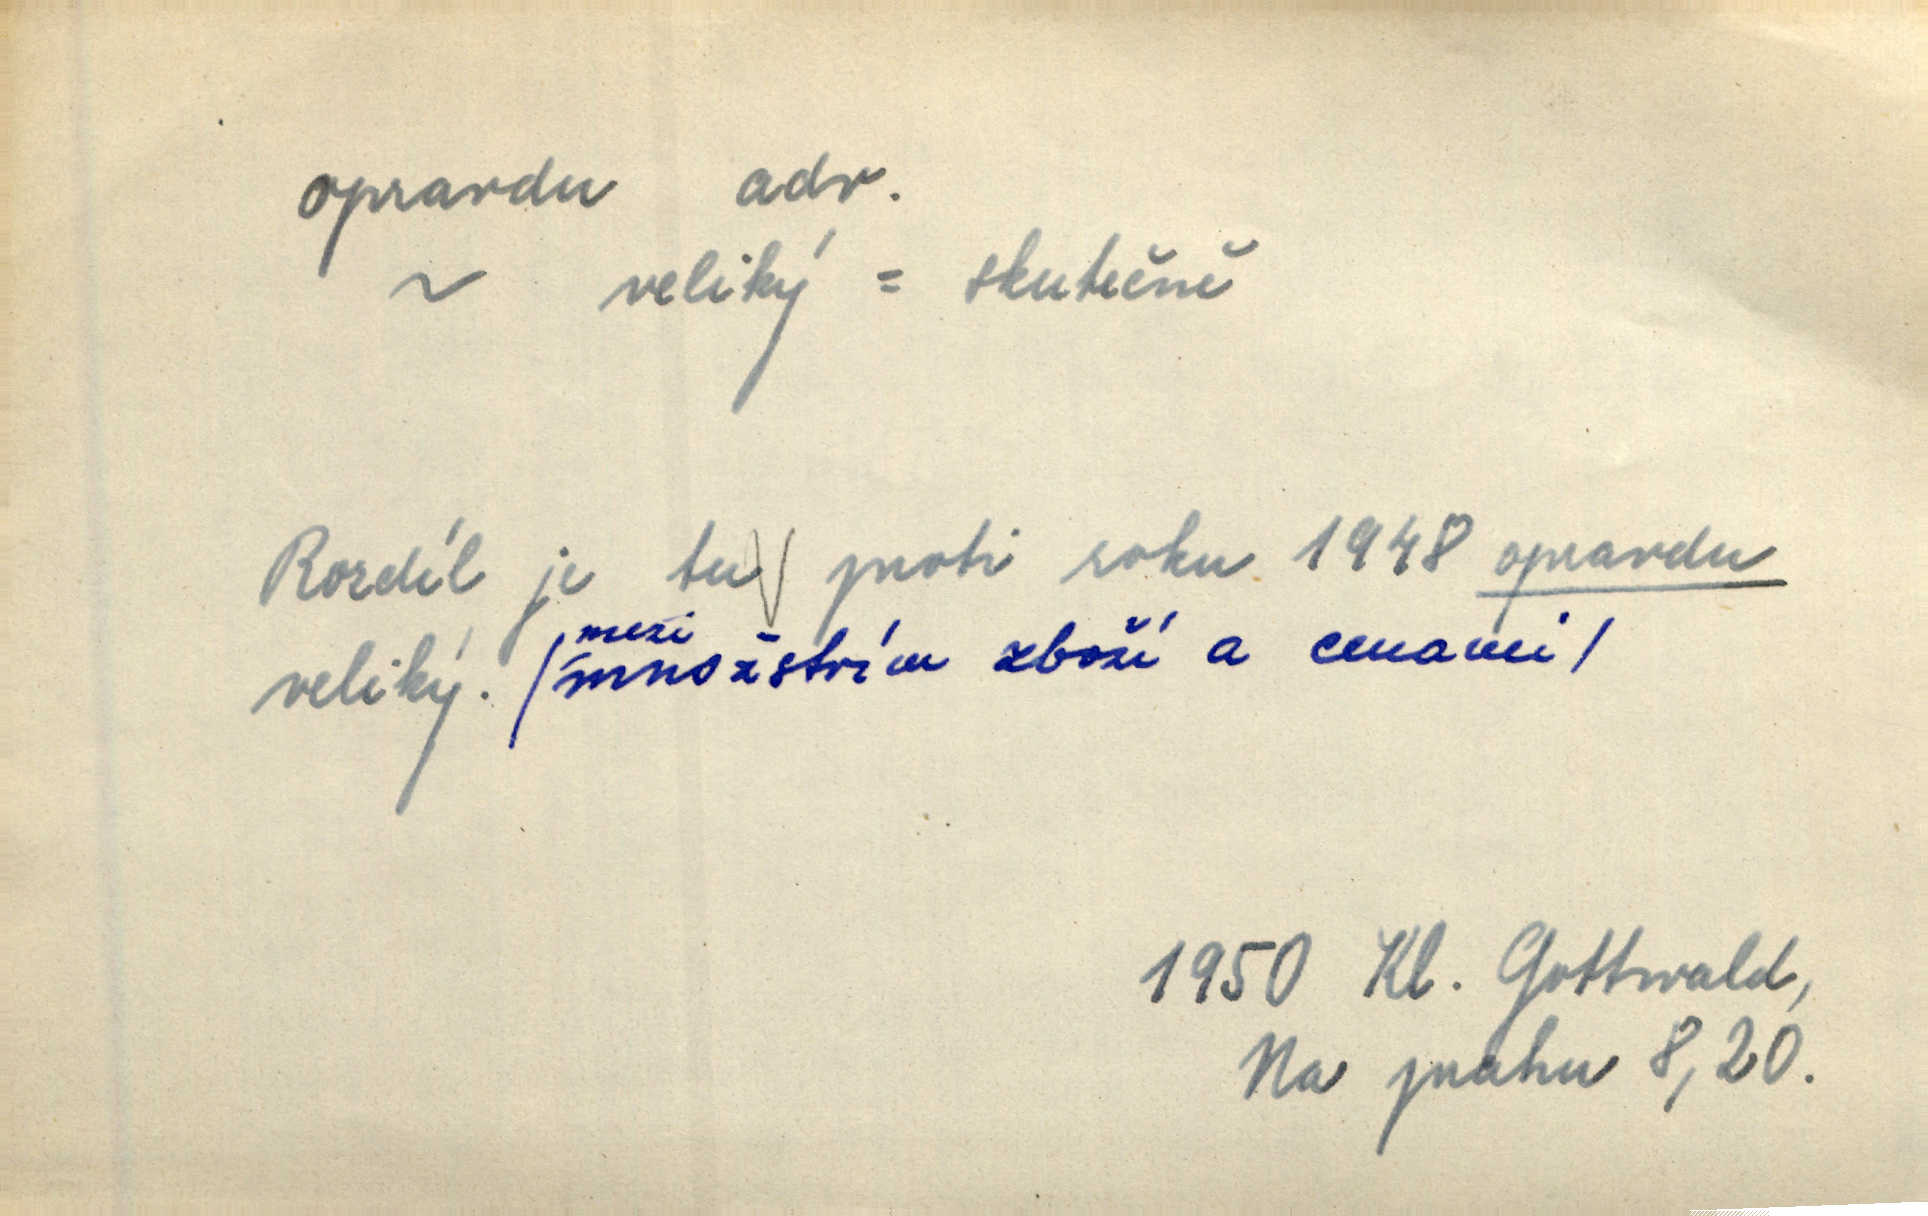 opravdu adv.
~ veliký = skutečně
Rozdíl je tu V proti roku 1948 opravdu
mezi
veliký. /množstvím zboží a cenami/
1950 Kl. Gottwald,
Na prahu 8,20.